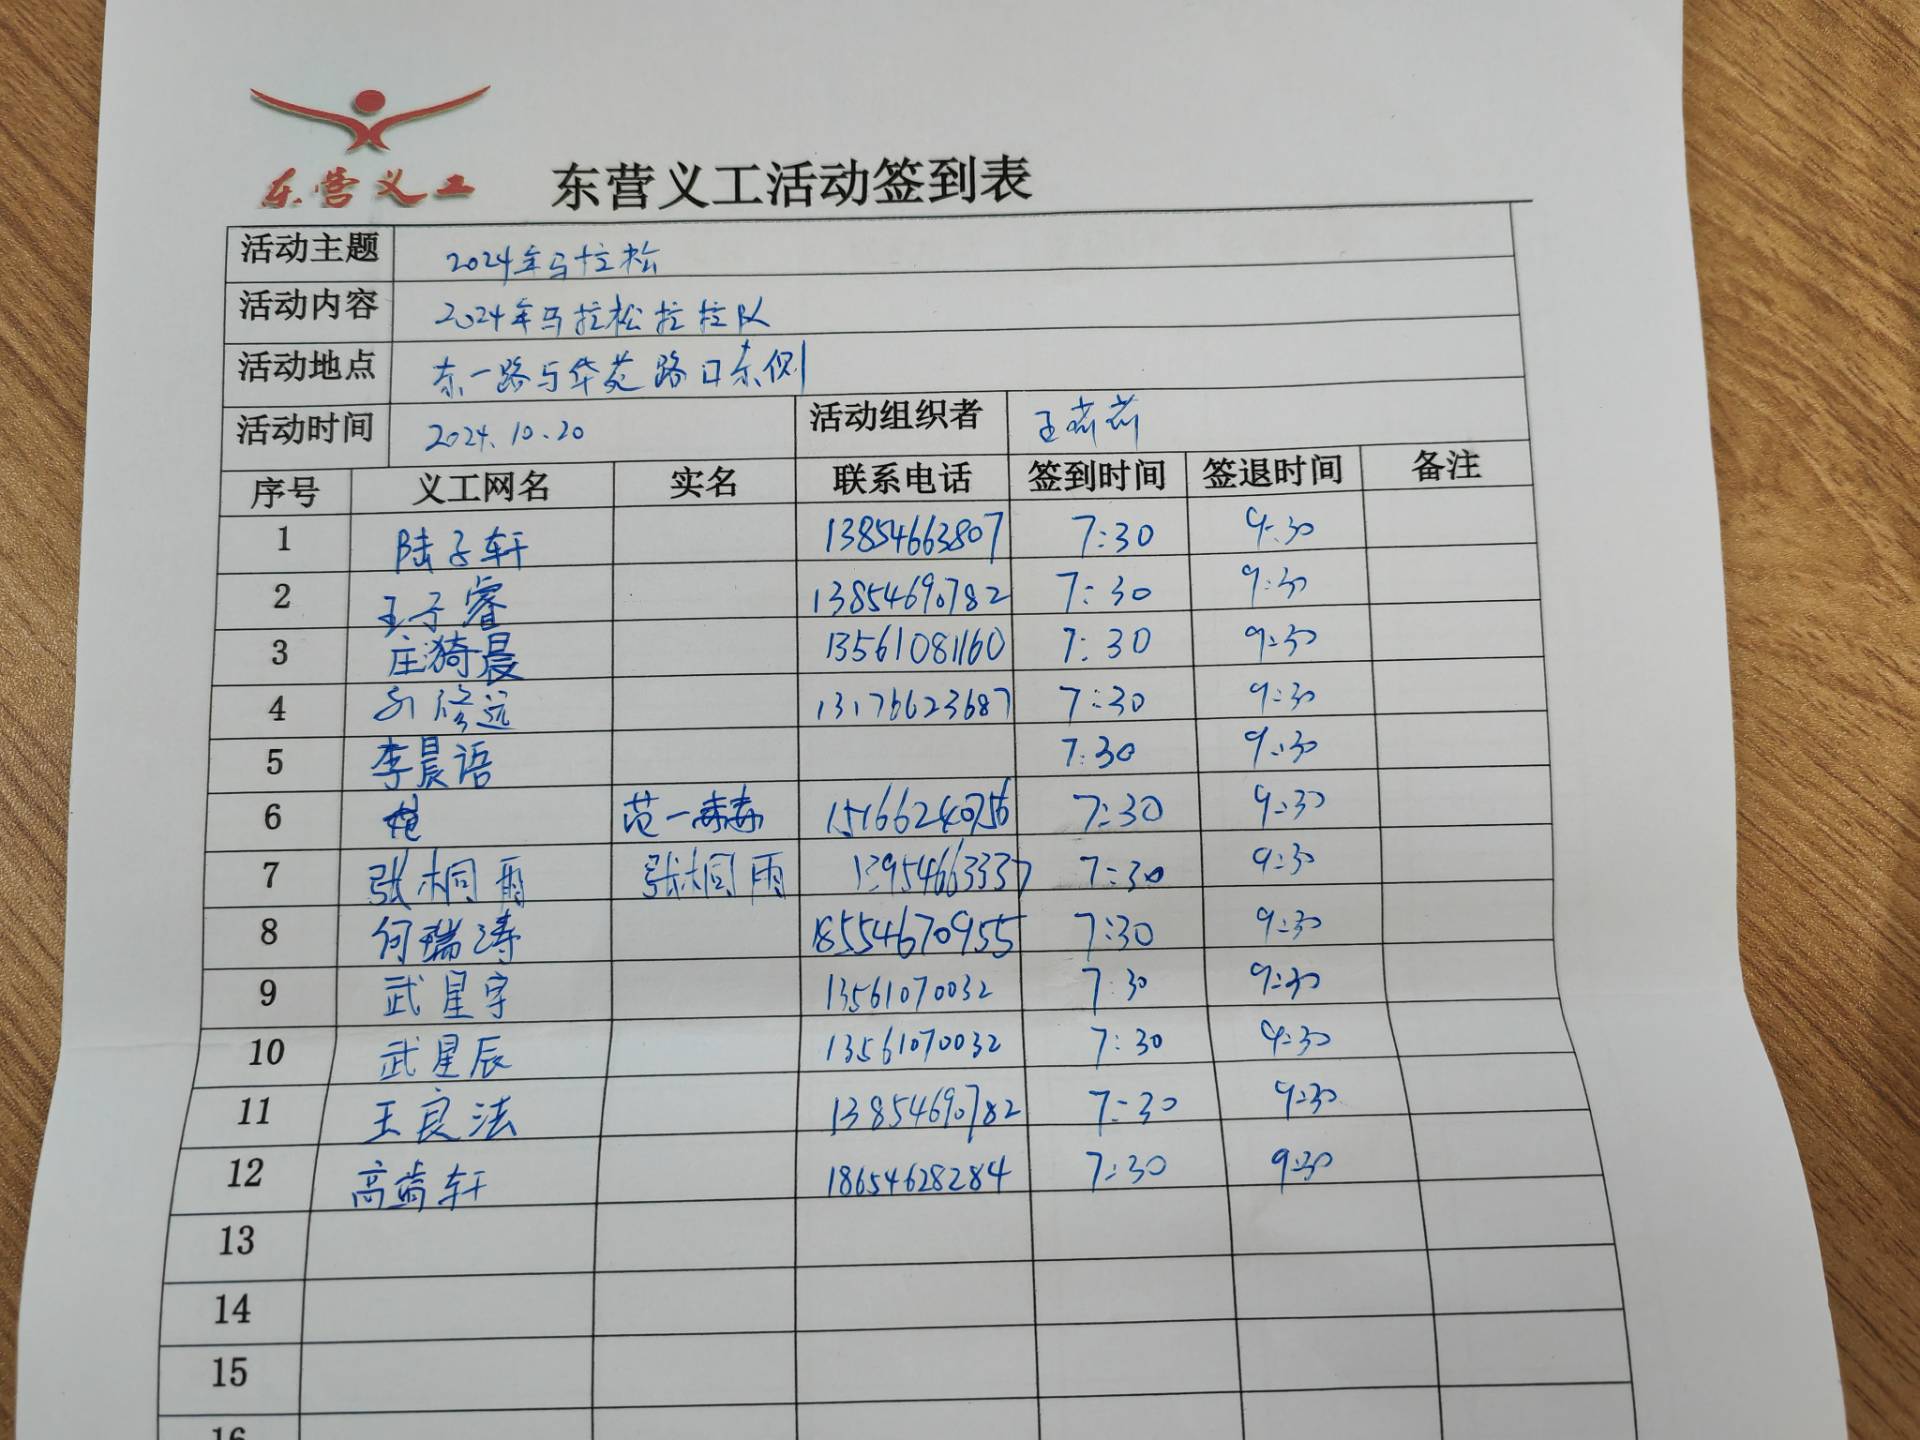 东营义工
东营义工活动签到表
活动主题 2024年马拉松
活动内容 2024年马拉松拉拉队
活动地点 东一路与华苑路口东侧
活动时间 2024.10.20 活动组织者 王莉莉
序号 义工网名 实名 联系电话 签到时间 签退时间 备注
1 陆子轩 13854663807 7:30 9:30
2 王子睿 13854690782 7:30 9:30
3 庄漪晨 13561081160 7:30 9:30
4 修远 13176623687 7:30 9:30
5 李晨语 7:30 9:30
6 范一 15166240756 7:30 9:30
7 张桐雨 张桐雨 13954663337 7:30 9:30
8 何瑞涛 18554670955 7:30 9:30
9 武星宇 13561070032 7:30 9:30
10 武星辰 13561070032 7:30 9:30
11 王良法 13854690782 7:30 9:30
12 高尚轩 18654628284 7:30 9:30
13
14
15
16